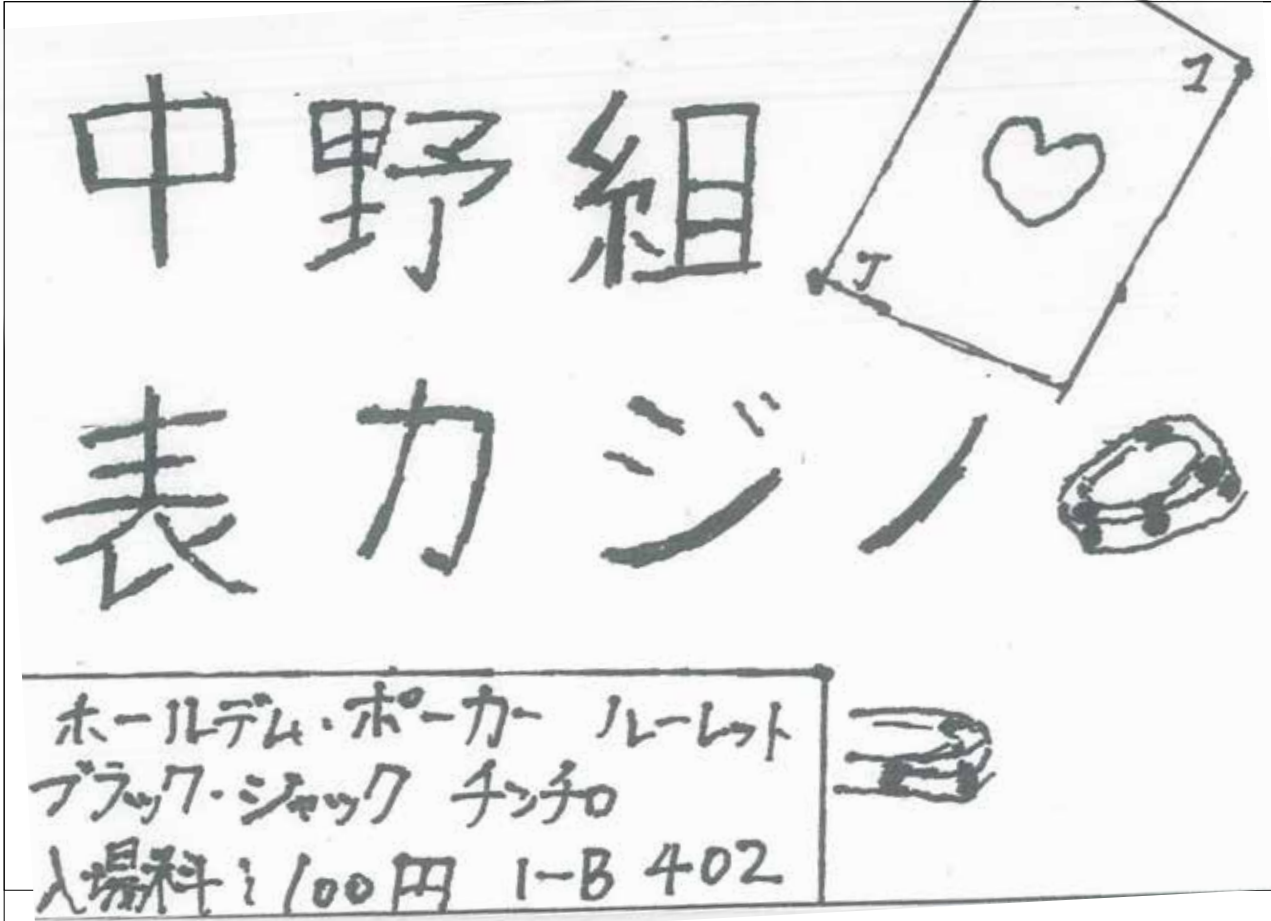 中野組
J
J
表カジノ
ホールデム・ポーカー ルーレット
ブラック・ジャック チンチロ
入場料:100円 1-B 402